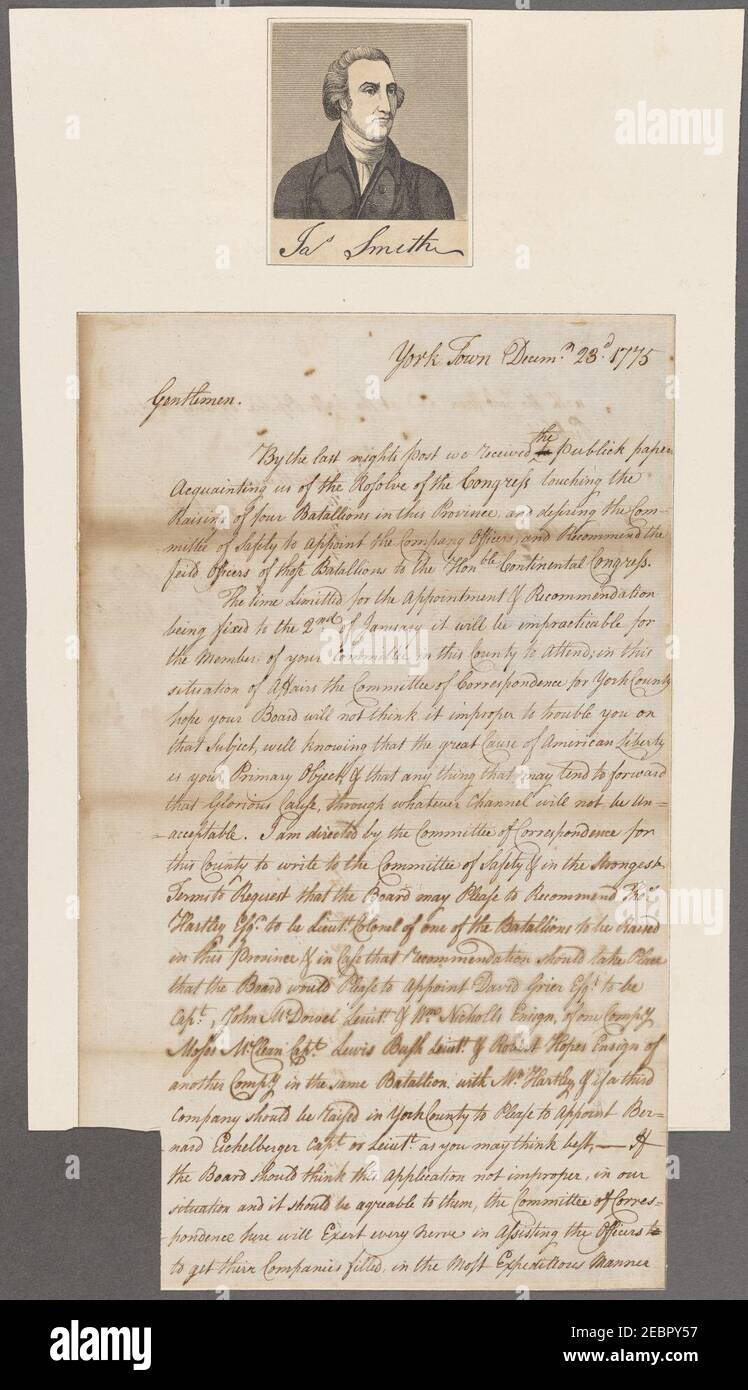 Jas Smith
York Town Decemr. 23d. 1775
Gentlemen.
By the last nights post we received the publick papers
Acquainting us of the Resolve of the Congress touching the
Raising of four Batallions in this Province, and desiring the Com-
mittee of Safety to appoint the Company Officers, and Recommend the
feild Officers of those Batallions to the Honble Continental Congress.
The time Limitted for the Appointment & Recommendation
being fixed to the 2nd of January it will be impracticable for
the Member of your Committee in this County to Attend; in this
situation of Affairs the Committee of Correspondence for York County
hope your Board will not think it improper to trouble you on
that Subject, well knowing that the great Cause of American Liberty
is your Primary Object, & that any thing that may tend to forward
that Glorious Cause, through whatever Channel will not be Un=
=acceptable. I am directed by the Committee of Correspondence for
this County to write to the Committee of Safety & in the Strongest
Terms to Request that the Board may Please to Recommend Thos.
Hartley Esqr. to be Lieutt. Colonel of one of the Batallions to be Raised
in this Province & in Case that Recommendation should take Place
that the Board would Please to Appoint David Grier Esqr. to be
Capt., John McDowel Lieutt. & Wm Nicholls Ensign, of one Compy.
Moses McClean Capt. Lewis Bush Lieutt. & Robert Hopes Ensign of
another Compy. in the same Batallion, with Mr. Hartley & if a third
Company should be Raised in York County to Please to Appoint Ber-
nard Eichelberger Capt. or Lieutt. as you may think best, — If
the Board should think this Application not improper, in our
situation and it should be agreable to them, the Committee of Corres-
-pondence here will Exert every Nerve in Assisting the Officers to
to get their Companies filled, in the Most Expeditious Manner
alamy
a
alamy
Image ID: 2EBPY57
www.alamy.com